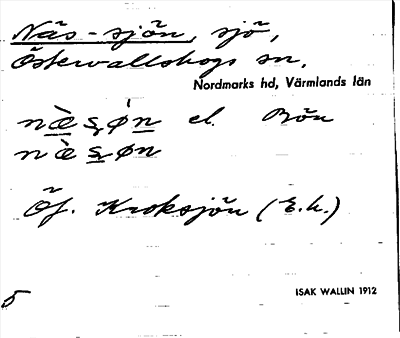 Näs-sjön, sjö,
Östervallskogs sn,
Nordmarks hd, Värmlands län
næ̀sø̀n el. Bön
næ̀søn
Öf. Kroksjön (E.k.)
5
ISAK WALLIN 1912